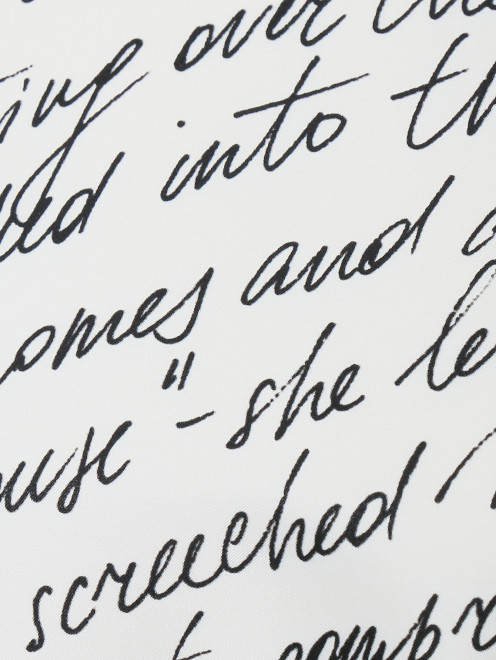 ing over the
ed into th
omes and
ouse" - she le
screeched
compr